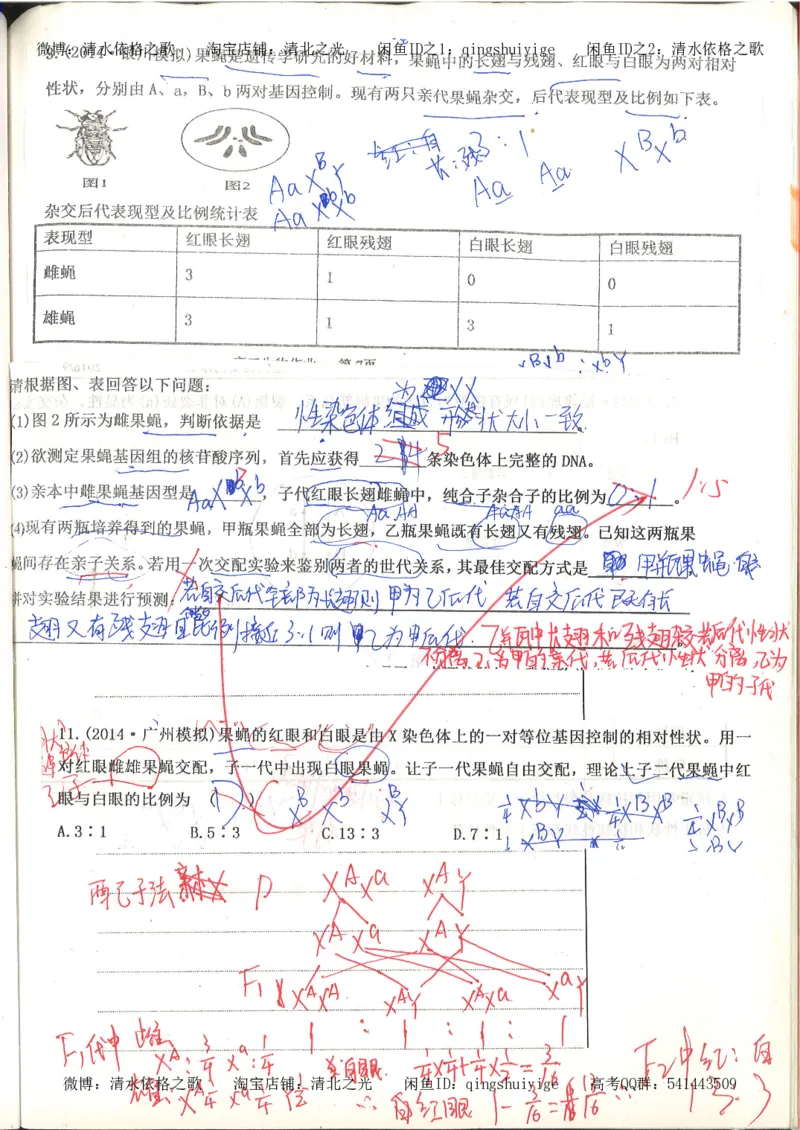 微博：清水依格之歌 淘宝店铺：清北之光 闲鱼ID之1：qingshuiyige 闲鱼ID之2：清水依格之歌
(2014·银川模拟)果蝇是遗传学研究的好材料，果蝇中的长翅与残翅、红眼与白眼为两对相对
性状，分别由A、a，B、b两对基因控制。现有两只亲代果蝇杂交，后代表现型及比例如下表。
长:残 3:1
Aa Aa
X^B X^b
图1 图2
AaX^BY
AaX^BX^b
杂交后代表现型及比例统计表
表现型 红眼长翅 红眼残翅 白眼长翅 白眼残翅
雌蝇 3 1 0 0
雄蝇 3 1 3 1
请根据图、表回答以下问题：
(1)图2所示为雌果蝇，判断依据是 性染色体组成 形状大小一致
为XX
(2)欲测定果蝇基因组的核苷酸序列，首先应获得 5 条染色体上完整的DNA。
(3)亲本中雌果蝇基因型是 AaX^BX^b ，子代红眼长翅雌蝇中，纯合子杂合子的比例为 0:1 。 1:5
(4)现有两瓶培养得到的果蝇，甲瓶果蝇全部为长翅，乙瓶果蝇既有长翅又有残翅。已知这两瓶果
蝇间存在亲子关系。若用一次交配实验来鉴别两者的世代关系，其最佳交配方式是 甲瓶果蝇自交
并对实验结果进行预测：若自交后代全部为长翅则甲为乙后代 若自交后代既有长
翅又有残翅且比例接近3:1则乙为甲后代
乙瓶中长翅和残翅杂交若后代性状
不分离，乙为甲的亲代，若后代性状分离，乙为
甲的子代
11.(2014·广州模拟)果蝇的红眼和白眼是由X染色体上的一对等位基因控制的相对性状。用一
对红眼雌雄果蝇交配，子一代中出现白眼果蝇。让子一代果蝇自由交配，理论上子二代果蝇中红
眼与白眼的比例为 ( )
X^B X^b X^BY
A.3∶1 B.5∶3 C.13∶3 D.7∶1
配子法 P X^AX^a X^AY
X^A X^a X^A Y
F₁ X^AX^A X^AY X^AX^a X^aY
1 : 1 : 1 : 1
F₁代中 雌 X^A:3/4 X^a:1/4
白眼 1/4×1/4+1/4×1/2=3/16
F₂中红:白
13:3
∴红眼 1-3/16=13/16
微博：清水依格之歌 淘宝店铺：清北之光 闲鱼ID之1：qingshuiyige 高考QQ群：541443509